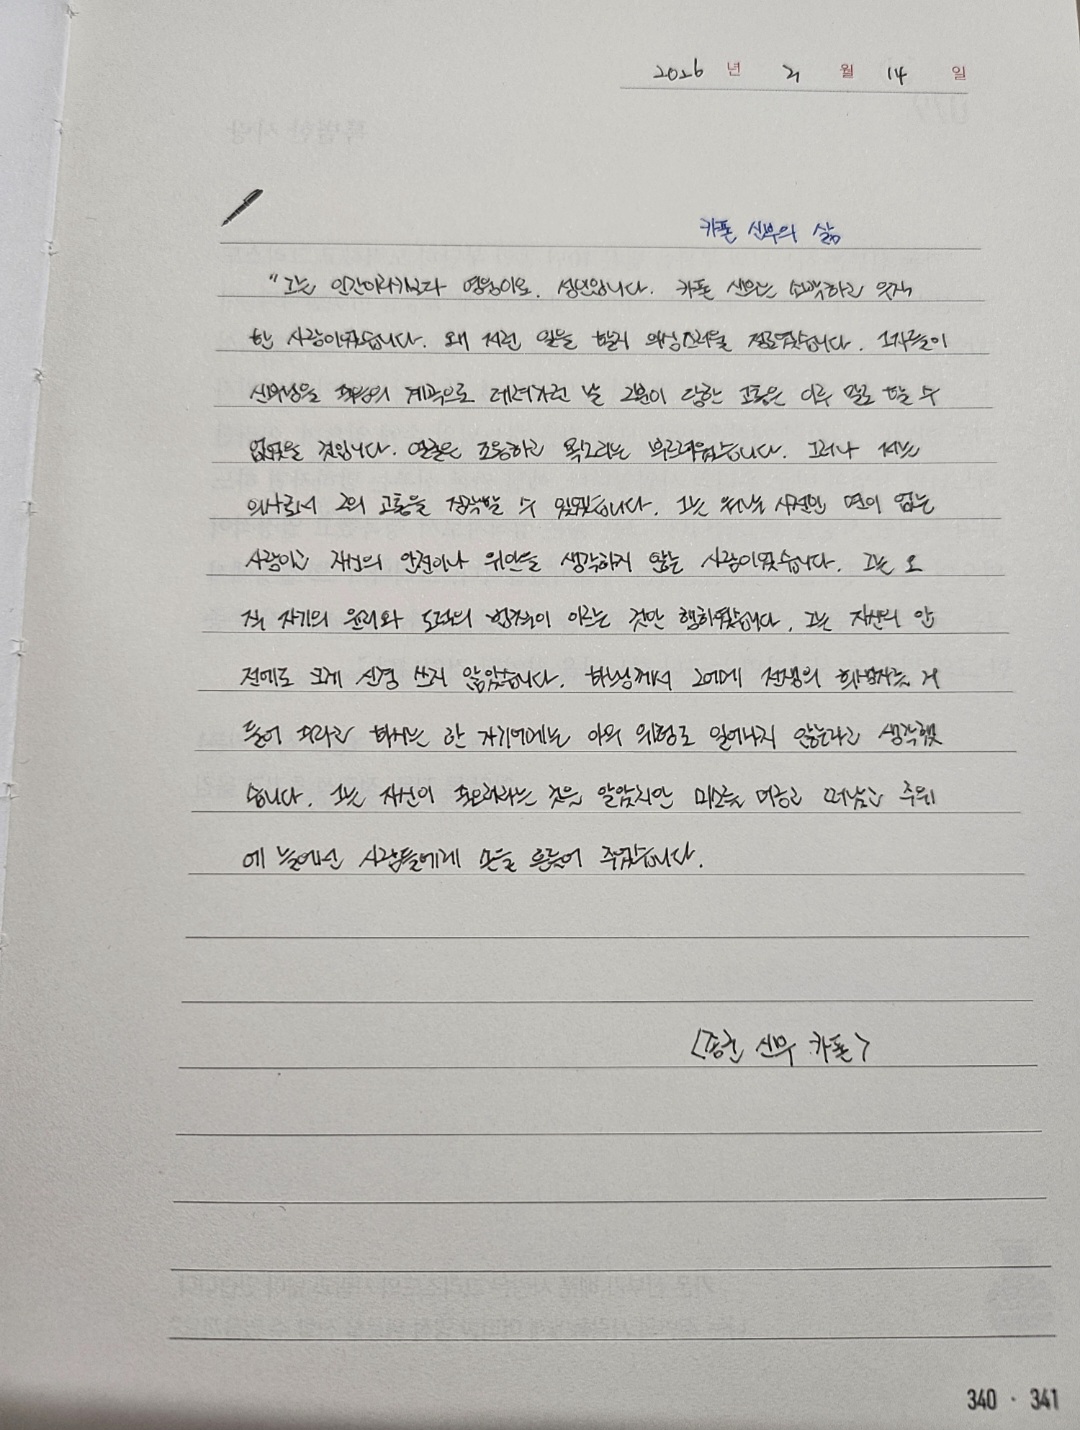 2026 년 21 월 14 일
카폰 신부의 삶
"그는 인간이라기보다 영웅이요, 성인입니다. 카폰 신부는 소박하고 우직
한 사람이었습니다. 왜 저런 일을 할까 의심스러울 정도였습니다. 그자들이
신부님을 죽음의 계곡으로 데려가던 날 그분이 당한 고통은 이루 말로 할 수
없었을 것입니다. 얼굴은 조용하고 목소리는 부드러웠습니다. 그러나 저는
의사로서 그의 고통을 짐작할 수 있었습니다. 그는 사전엔 면이 없는
사람이고 자신의 안전이나 위안을 생각하지 않는 사람이었습니다. 그는 오
직 자기의 윤리와 도덕의 원칙이 이르는 것만 행하였습니다. 그는 자신의 안
전에도 크게 신경 쓰지 않았습니다. 하느님께서 그에게 전쟁의 희생자를 거
들어 주라고 하시는 한 자기에게는 아무 위험도 일어나지 않는다고 생각했
습니다. 그는 자신이 죽으리라는 것을 알았지만 미소를 머금고 떠났고 주위
에 늘어선 사람들에게 손을 흔들어 주었습니다.
<종군 신부 카폰>
340 · 341